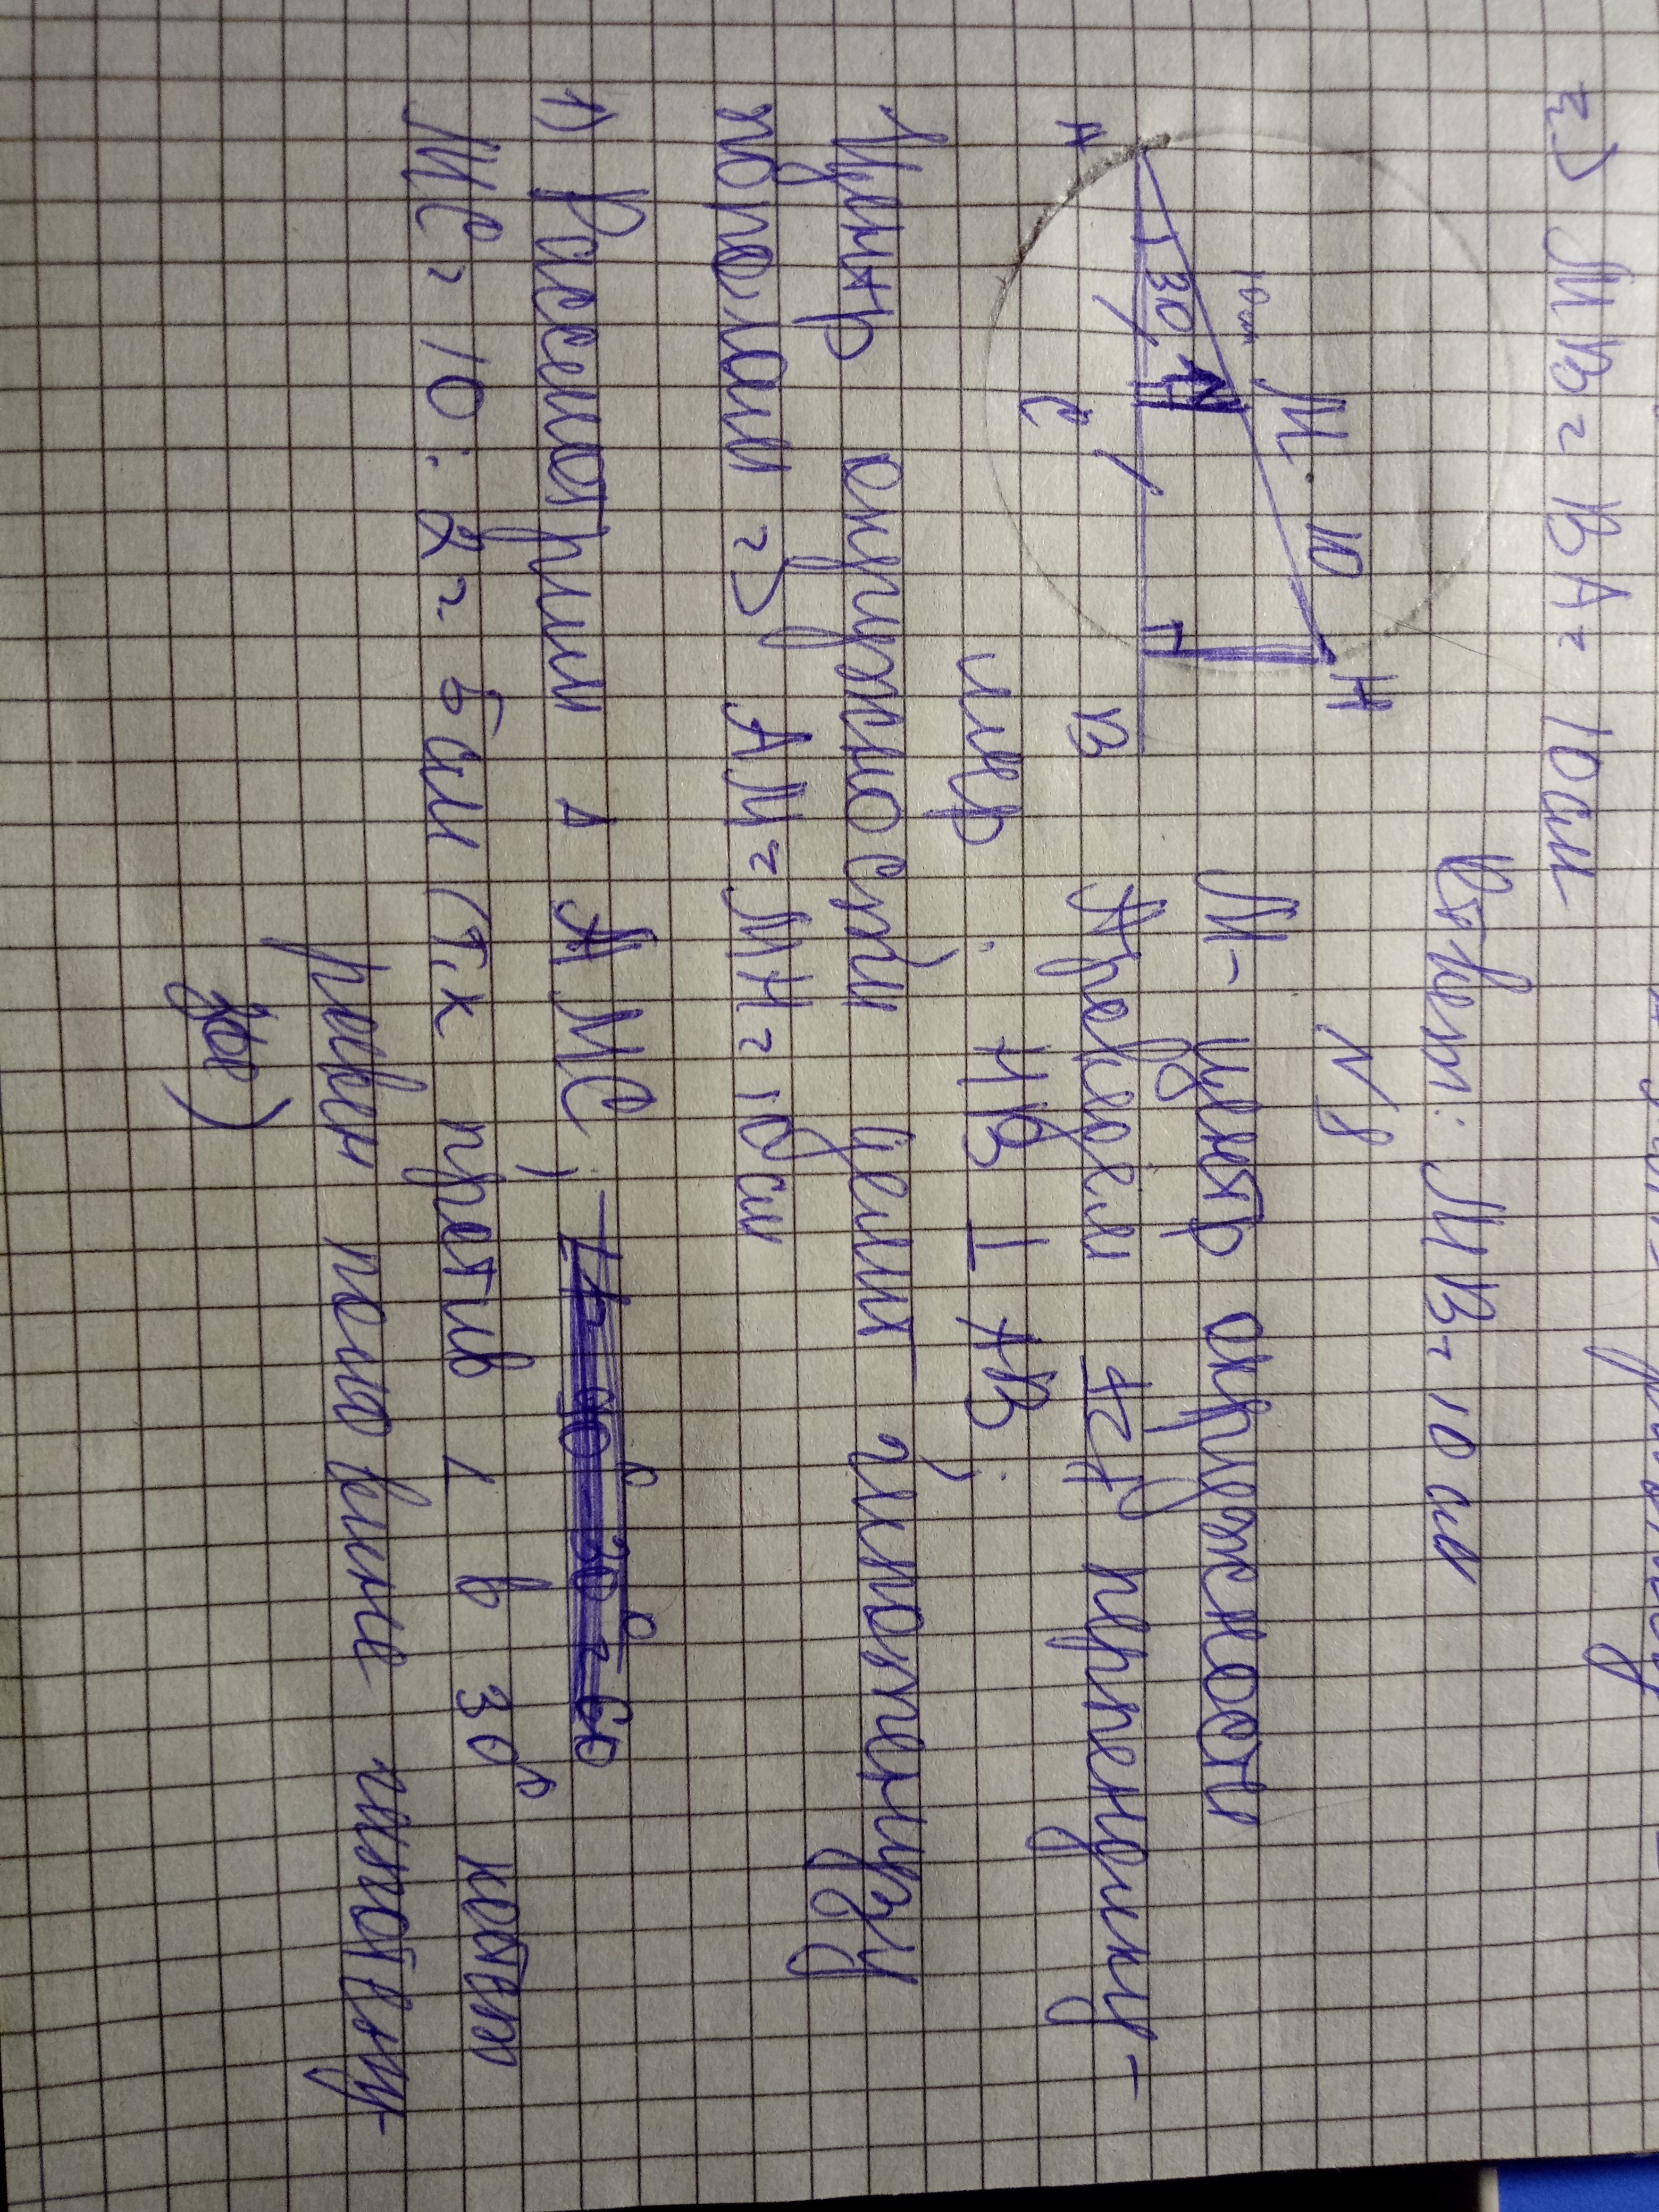 3) МВ = ВА = 10см
Ответ: МВ = 10 см
N8
М - центр окружности
Проведём перпендику-
ляр : НВ ⊥ АВ;
Н
М. 10
10 см
30
А
С
В
Центр окружности делит гипотенузу
пополам => АМ = МН = 10 см
1) Рассмотрим ⊿ АМС;
МС = 10 : 2 = 5 см (тк против ∠ в 30° катет
равен половине гипотену-
зы)